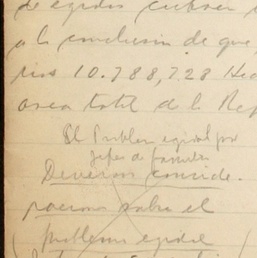 de ejidos cubren
a la conclusión de que,
rios 10.788,728 Hec
area total de la Rep
El Problema ejidal por
Jefes de familia
Diversas conside-
raciones sobre el
problema ejidal